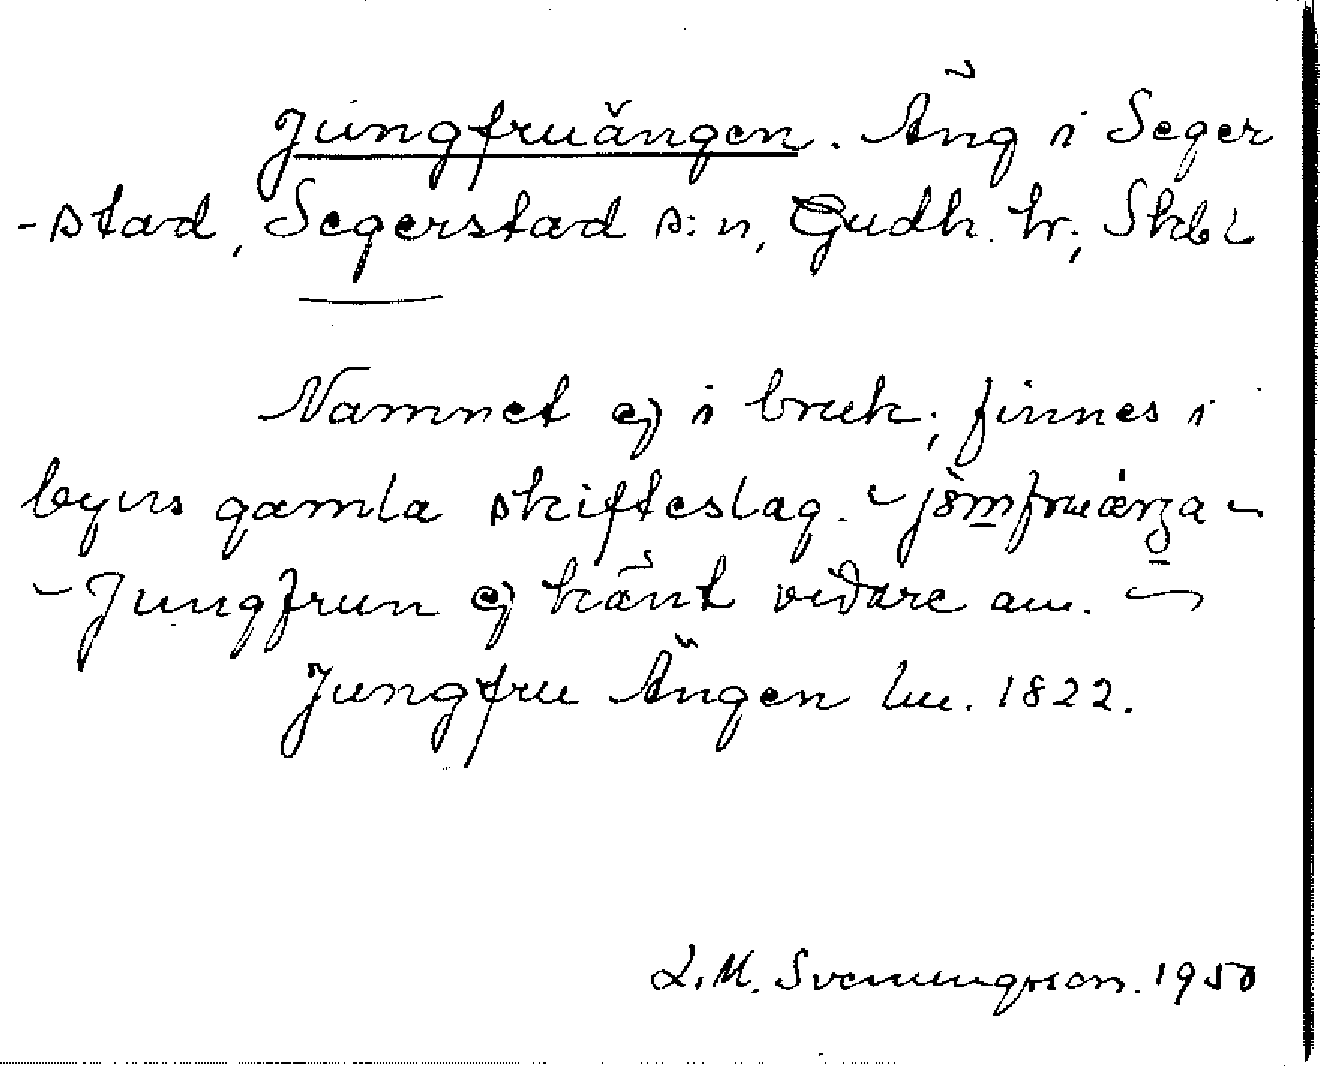 Jungfruängen. Äng i Seger
-stad, Segerstad s:n, Gudh. hr, Skbl
Namnet ej i bruk; finnes i
byns gamla skifteslag.
Jungfrun ej känt vidare av.
Jungfru Ängen lm. 1822.
L.M. Svenungsson. 1950